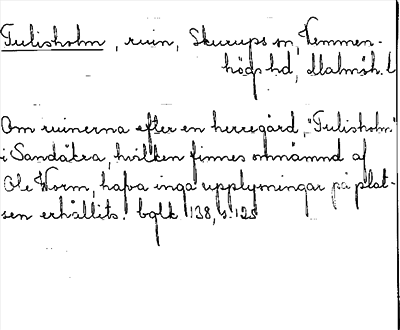 Tulisholm, ruin, Skurups sn, Vemmen-
högs hd, Malmöh. l
Om ruinerna efter en herregård, "Tulisholm"
i Sandåkra, hvilken finnes omnämnd af
Ole Worm, hafva inga upplysningar på plat-
sen erhållits. bqlk 138, s. 125